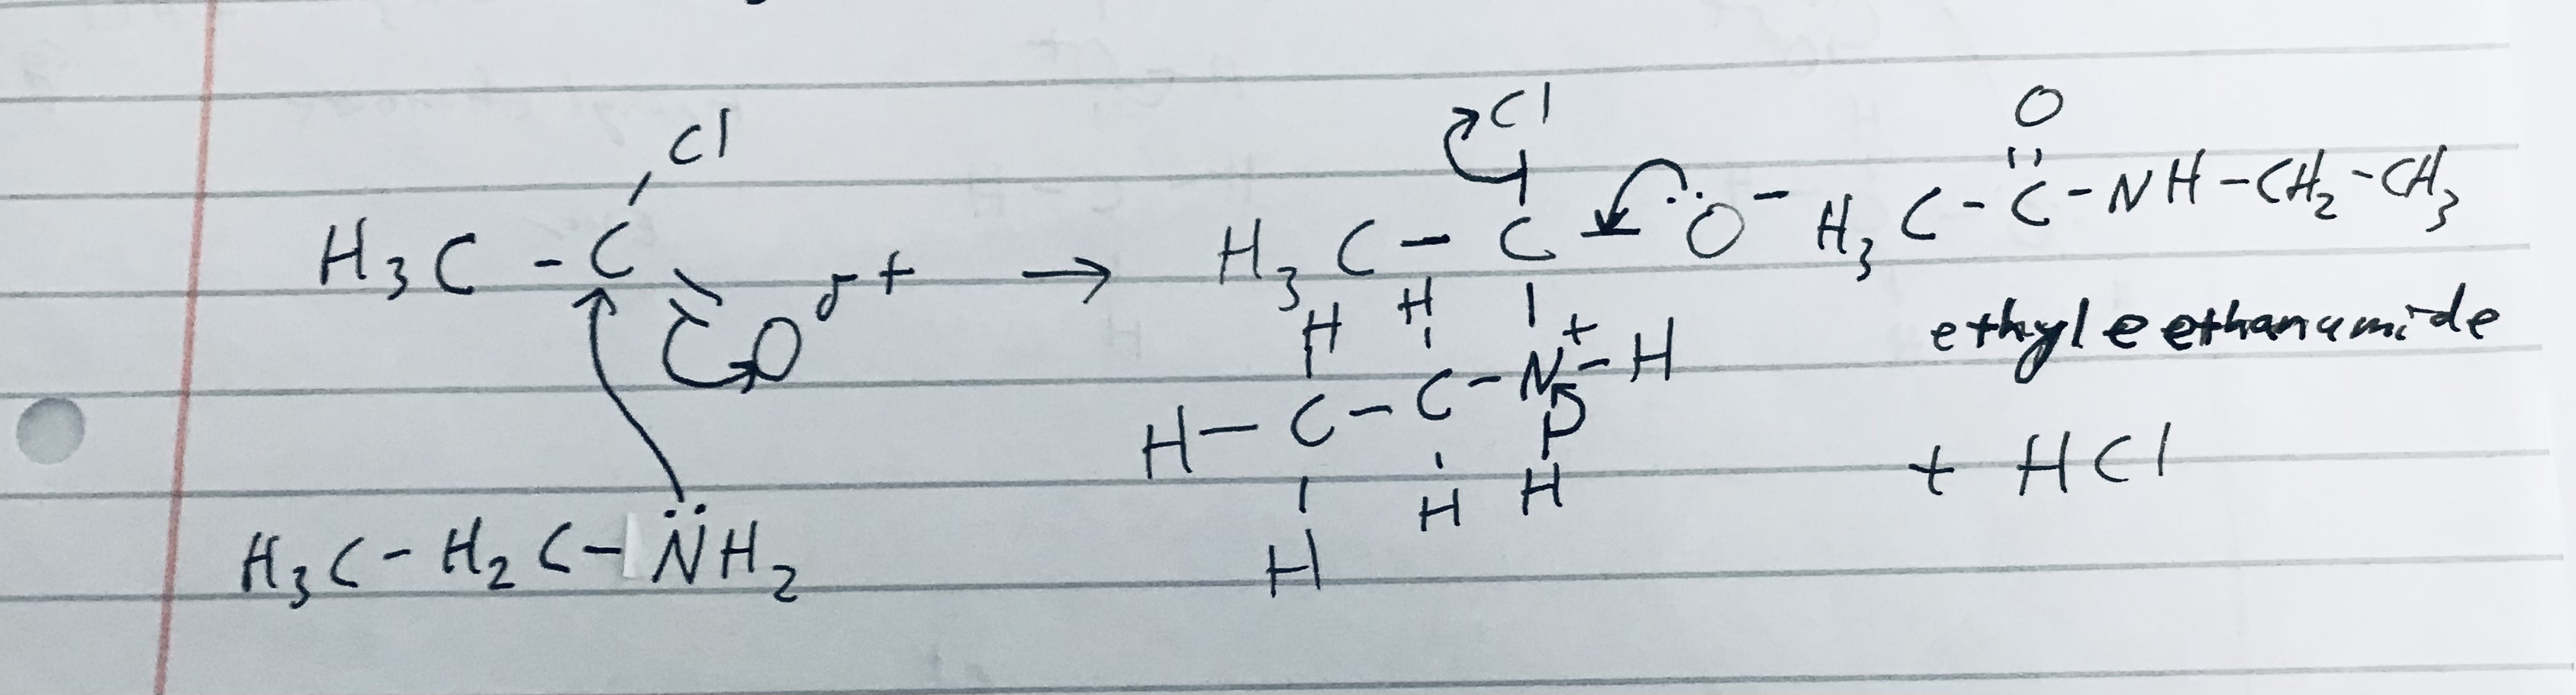 Cl
H₃C - C = O δ+ → H₃C - C - O⁻
H₃C - H₂C - NH₂
Cl
H H N⁺ - H
H - C - C
H H H
O
H₃C - C - NH - CH₂ - CH₃
ethyleethanamide
+ HCl